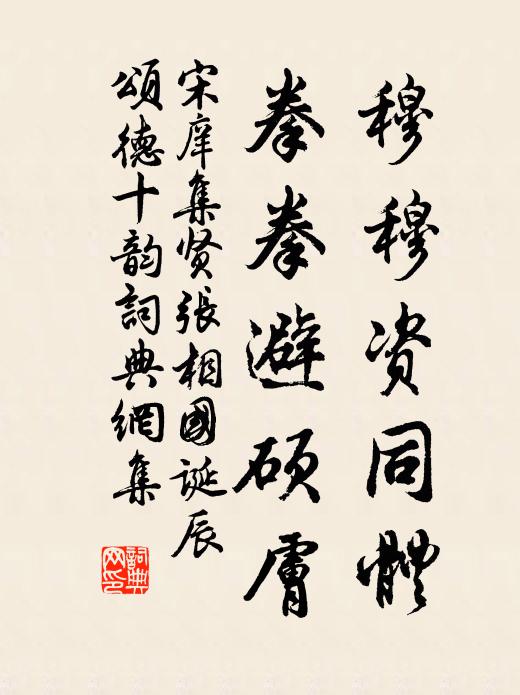 穆穆资同體
拳拳避硕膚
宋庠集贤張相國誕辰
頌德十韵詞典網集
詞典网印